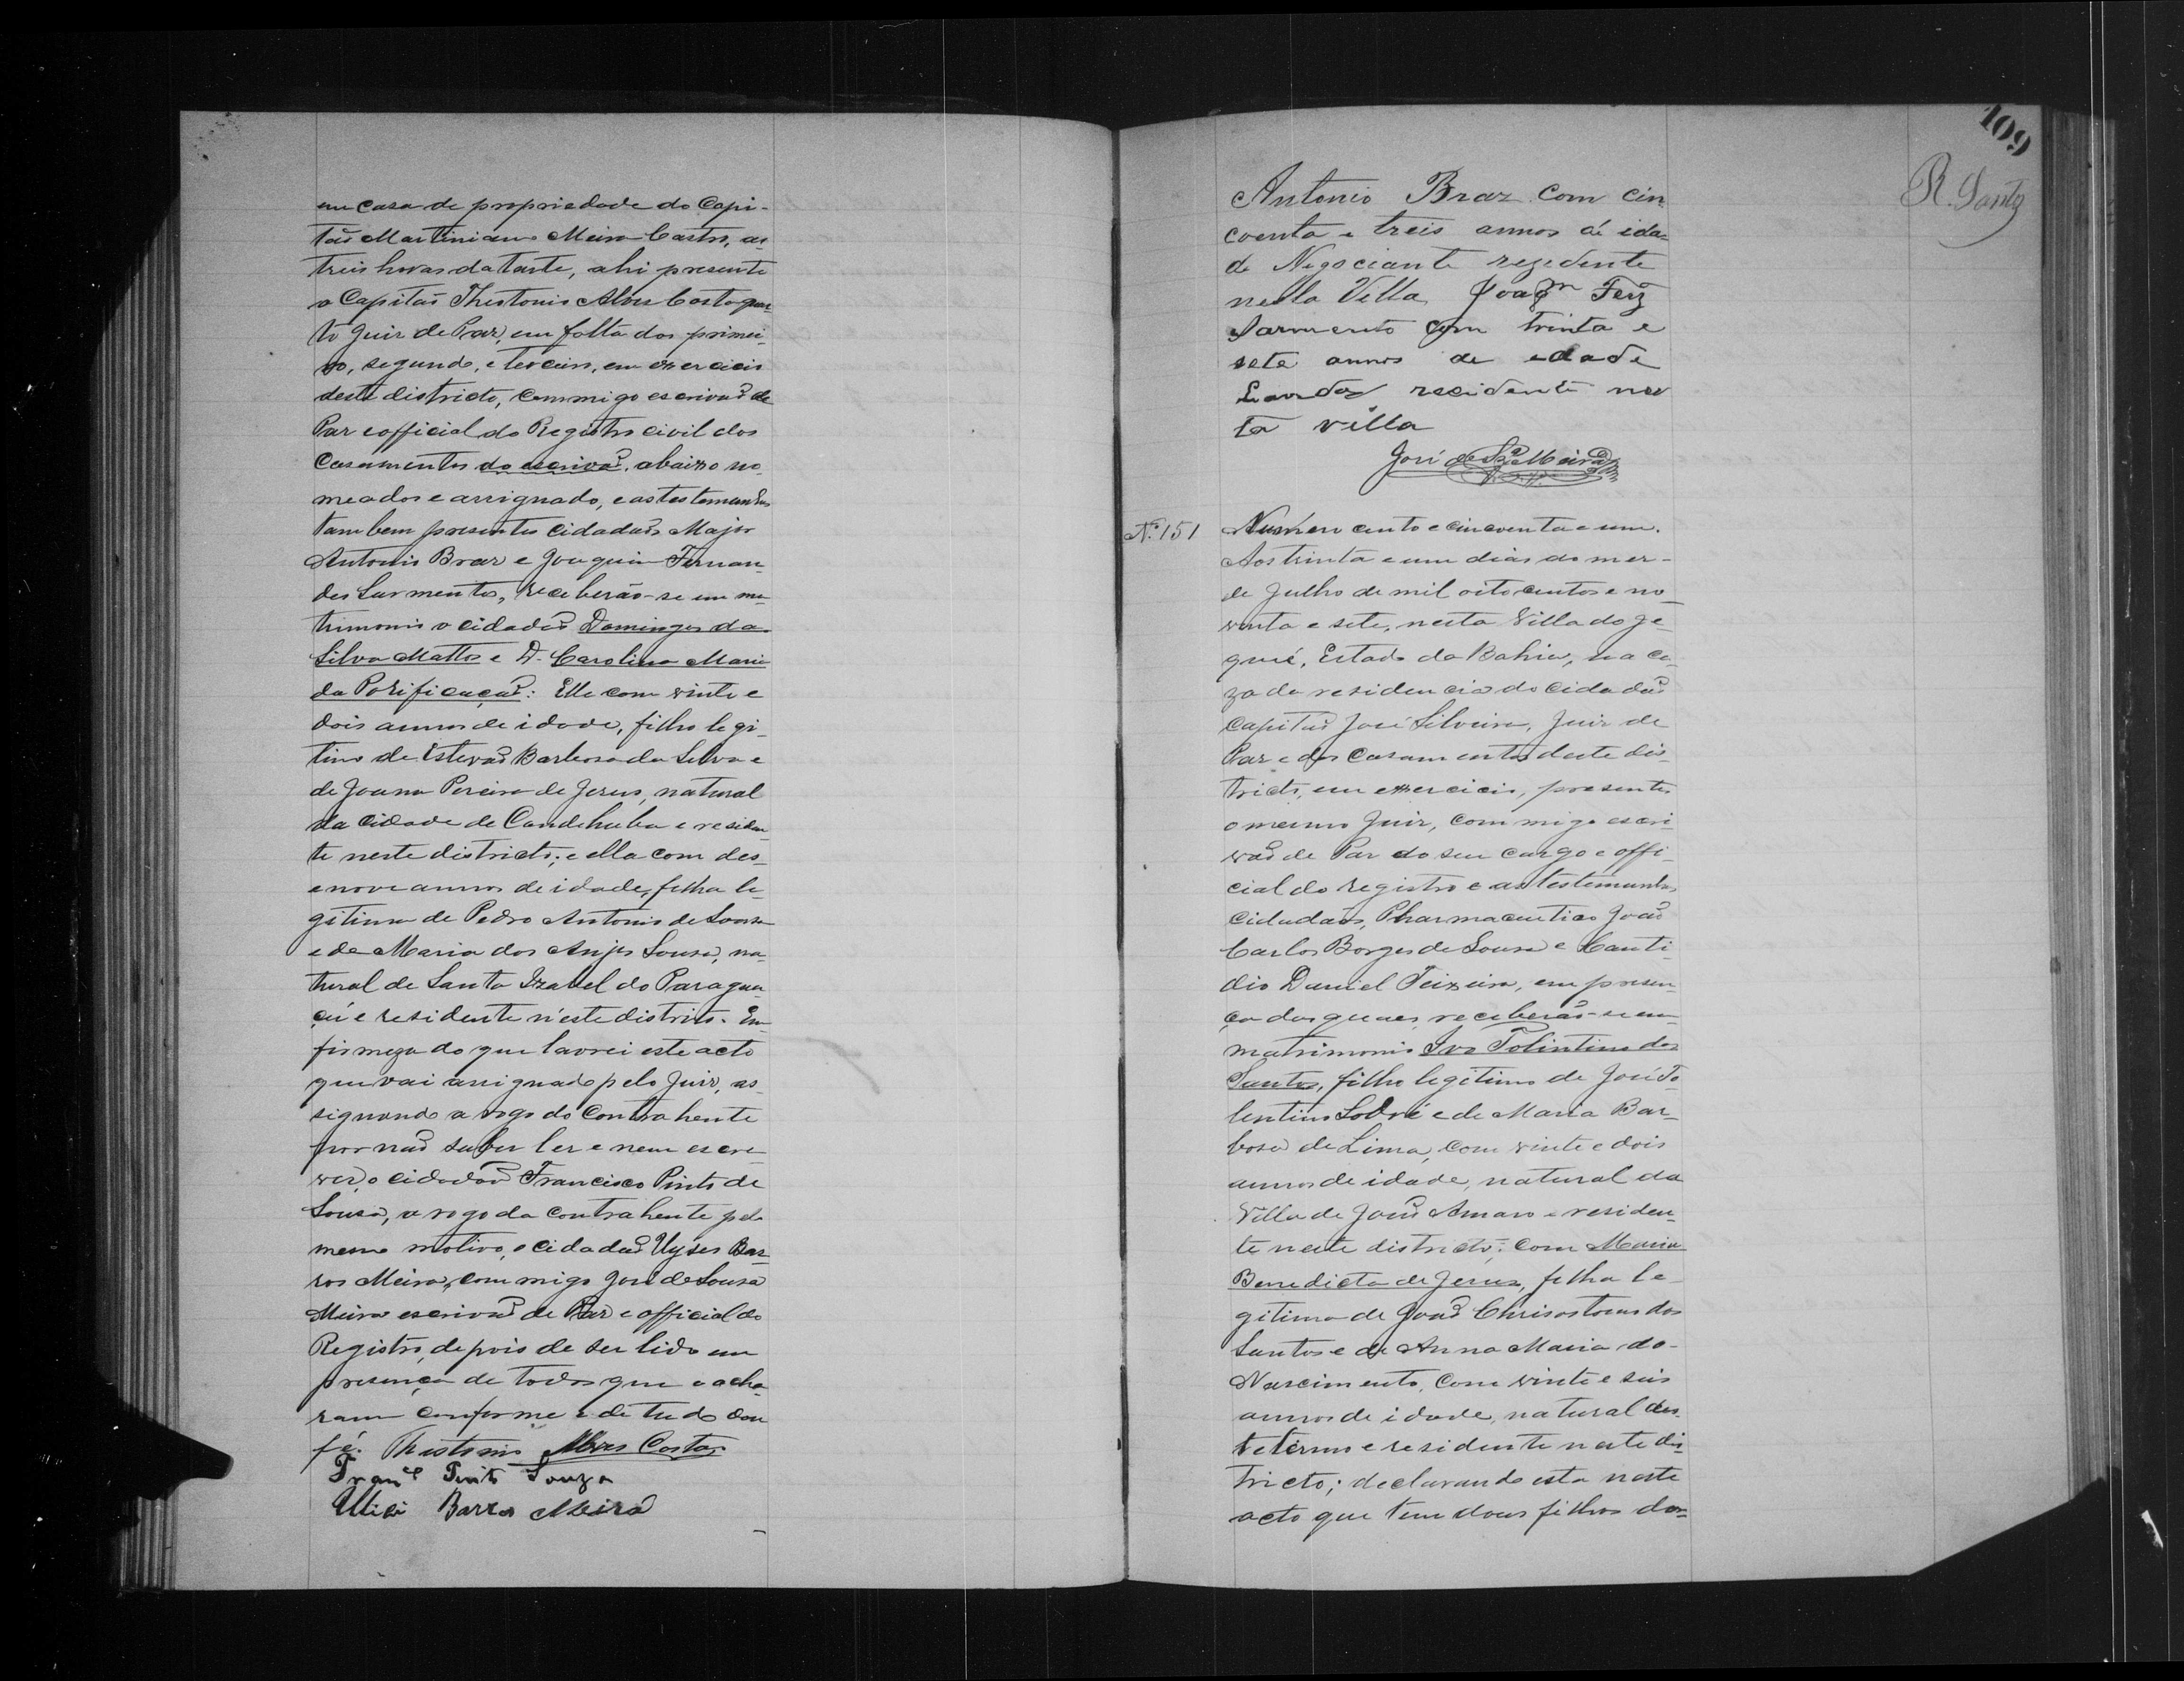 em casa de propriedade do Capi-
tão Martiniano Meira Castro, as
treis horas da tarde, ahi presente
o Capitão Theotonio Alves Costa quar-
to Juiz de Paz, em falta dos primei-
ro, segundo, e terceiro, em exercicio
deste districto, commigo escrivaõ de
Paz e official do Registro civil dos
Casamentos do escrivaõ, abaixo no-
meados e assignado, e as testemunhas
tambem presentes cidadaõs Major
Antonio Braz e Joaquim Fernan-
des Sarmento, receberão-se em ma-
trimonio o cidadaõ Domingos da
Silva Mattos e D. Carolina Maria
da Porificaçaõ: Elle com vinte e
dois annos de idade, filho legi-
timo de Estevaõ Barbosa da Silva e
de Joana Pereira de Jesus, natural
da Cidade de Condehuba e residen-
te neste districto; e ella com des-
enove annos de idade, filha le-
gitima de Pedro Antonio de Sousa
e de Maria dos Anjos Sousa, na-
tural de Santa Izabel do Paragua-
çú e residente n'este districto. Em
firmeza do que lavrei este acto
que vai assignado pelo Juiz, as-
signando a rogo do Contrahente
por naõ saber ler e nem escre-
ver, o cidadaõ Francisco Pinto de
Sousa, a rogo da contrahente pelo
mesmo motivo, o cidadaõ Ulyses Bar-
ros Meira, commigo José de Sousa
Meira escrivaõ de Paz e official do
Registro, depois de ser lido em
presença de todos que o acha-
ram conforme e de tudo dou
fé. Theotonio Alves Costa
Fran.co Pinto Souza
Ulici Barros Meira
109
R. Santos
Antonio Braz com cin
coenta e treis annos di ida-
de Negociante rezedente
nesta Villa, Joaqm Ferz
Sarmento com trinta e
sete annos de edade
residente nes
ta villa
José de Sza Meira
N.º 151
Numero cento e cincoenta e um.
Aos trinta e um dias do mez-
de Julho de mil oito centos e no-
venta e sete, nesta Villa do Je-
quié, Estado da Bahia, na ca-
za da residencia do cidadaõ
Capitaõ José Silveira, Juiz de
Paz e dos Casamentos deste dis-
tricto, em exercicio, presentes
o mesmo Juiz, commigo escri-
vaõ de Paz do seu cargo e offi-
cial do registro e as testemunhas
cidadaõs, Pharmaceutico Joaõ
Carlos Borges de Sousa e Canti-
dio Daniel Teixeira, em presen-
ça dos quaes receberaõ-se em
matrimonio Ivo Tolintino dos
Santos, filho legitimo de José To-
lentino Sodré e de Maria Bar-
bosa de Lima, com vinte e dois
annos de idade, natural da
Villa de Joaõ Amaro e residen-
te neste districto; com Maria
Benedicta de Jesus, filha le-
gitima de Joaõ Chrisostomo dos
Santos e de Anna Maria do-
Nascimento, com vinte e seis
annos de idade, natural des-
te termo e residente neste dis-
tricto; declarando esta neste
acto que tem dous filhos dos-